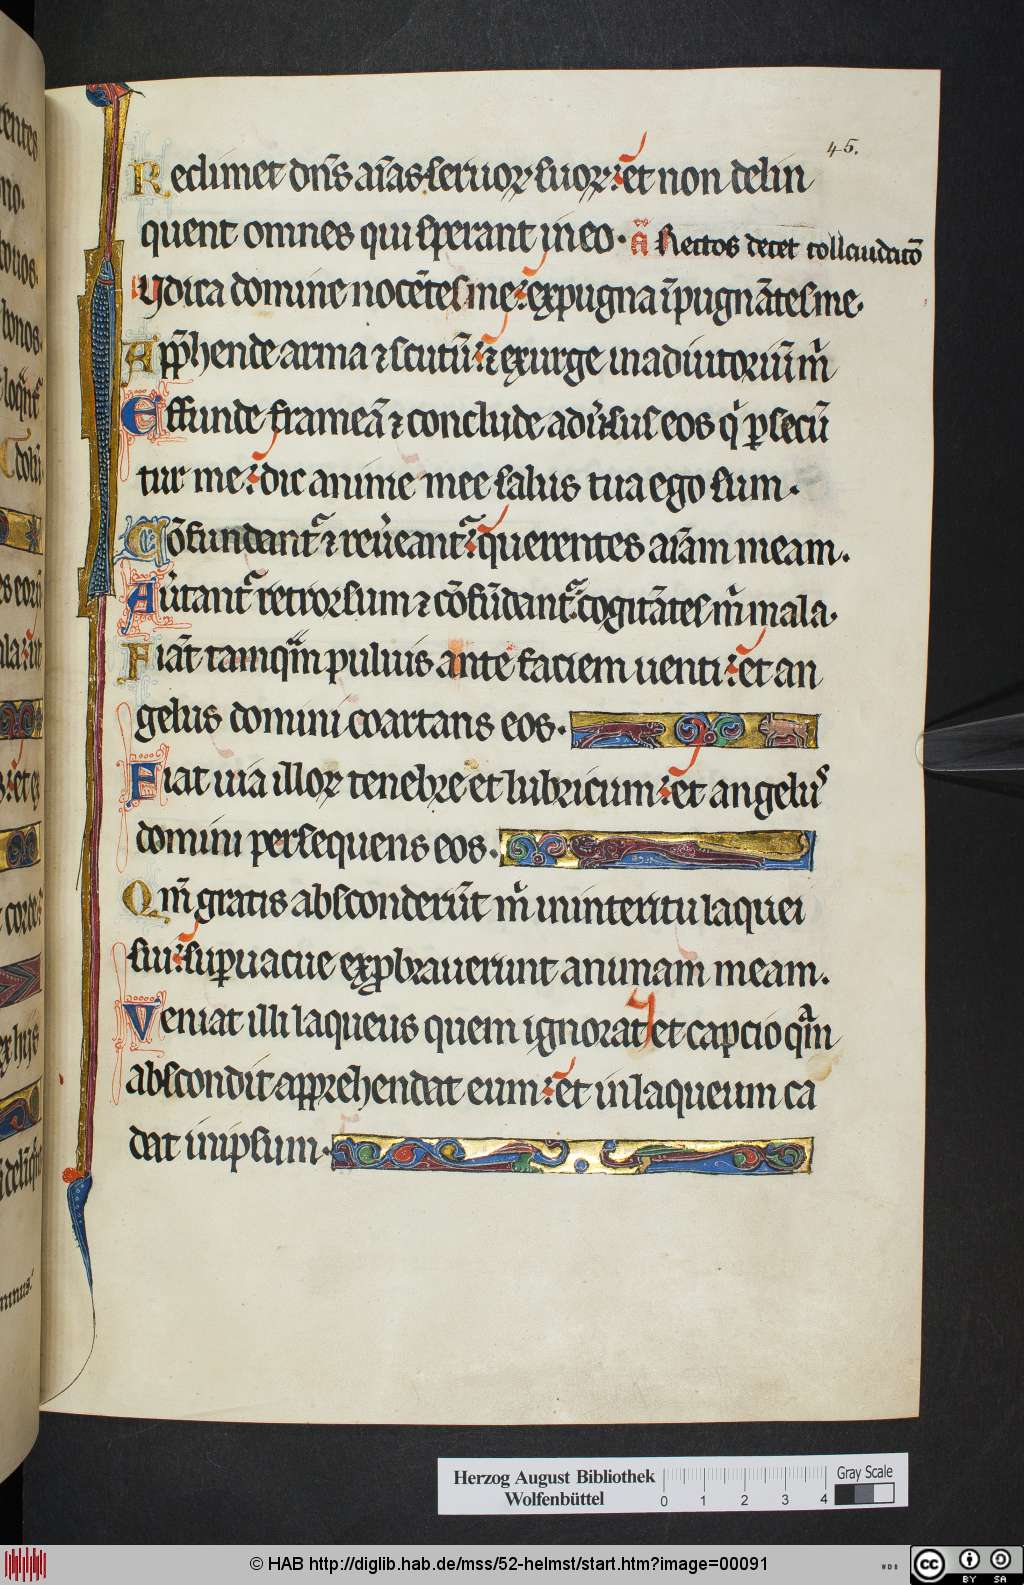 45.
Reclimet dn̄s aīas seruoꝝ suoꝝ: et non delin
quent omnes qui sperant in eo. ā Rectos decet collaudatō
Iudica domine nocētes me: expugna īpugnātes me.
App̄hende arma ⁊ scutū: ⁊ exurge in adiutoriū m̄
Effunde frameā ⁊ conclude adūsus eos q̄ ꝑsecū
tur me: dic anime mee salus tua ego sum.
Cōfundant᷑ ⁊ reūeant᷑: querentes aīam meam.
Aūtant᷑ retrorsum ⁊ cōfūdant᷑: cogitātes m̄ mala.
Fiāt tamqᷓm puluis ante faciem uenti: et an
gelus domini coartans eos.
Fiat uia illoꝝ tenebre et lubricum: et angelus
domini persequens eos.
Qm̄ gratis absconderūt m̄ in interitu laquei
sui: suꝑuacue exꝓbrauerunt animam meam.
Veniat illi laqueus quem ignorat et capcio qᷓm
abscondit apprehendat eum: et in laqueum ca
dat in ipsum.
tentes
loqūt᷑
dolū
cordeˢ
ex hijs
Herzog August Bibliothek
Wolfenbüttel
0 1 2 3 4
Gray Scale
© HAB http://diglib.hab.de/mss/52-helmst/start.htm?image=00091
WDB
cc BY SA